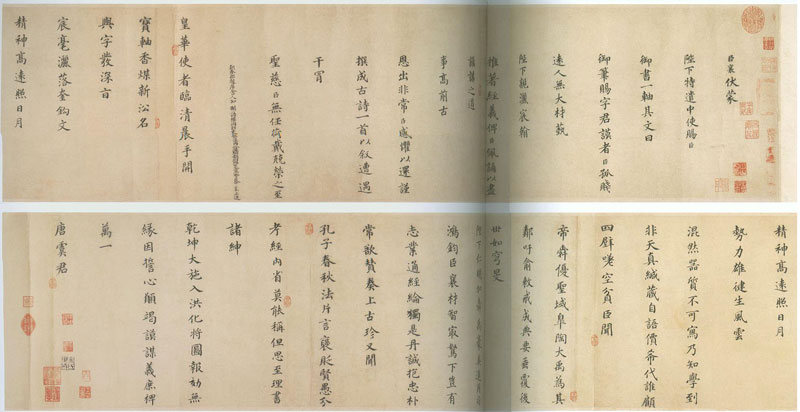 臣襄伏蒙
陛下特遣中使賜臣
御書一軸其文曰
御筆賜字君謨者臣孤賤
遠人無大材藝
陛下親灑宸翰
推著經義俾臣佩誦以盡
之道
事高前古
恩出非常臣感懼以還謹
撰成古詩一首以敘遭遇
干冒
聖慈臣無任荷戴兢榮之至
皇華使者臨清晨手開
寶軸香煤新沿名
與字發深旨
宸毫灑落奎鉤文
精神高遠照日月
精神高遠照日月
勢力雄健生風雲
混然器質不可寫乃知學到
非天真緘藏自語價希代誰顧
四壁嗟空貧臣聞
帝舜優聖域皋陶大禹為其
鄰吁俞敕戒成典要垂覆後
世如穹旻
陛下仁明如
鴻鈞臣襄材智最駑下豈有
志業通經綸獨是丹誠抱忠朴
常欲贊奏上古珍又聞
孔子春秋法片言褒貶賢愚分
考經內省莫能稱但思至理書
諸紳
乾坤大施入洪化將圖報効無
緣因誓心願竭謨謀義庶裨
萬一
唐虞君